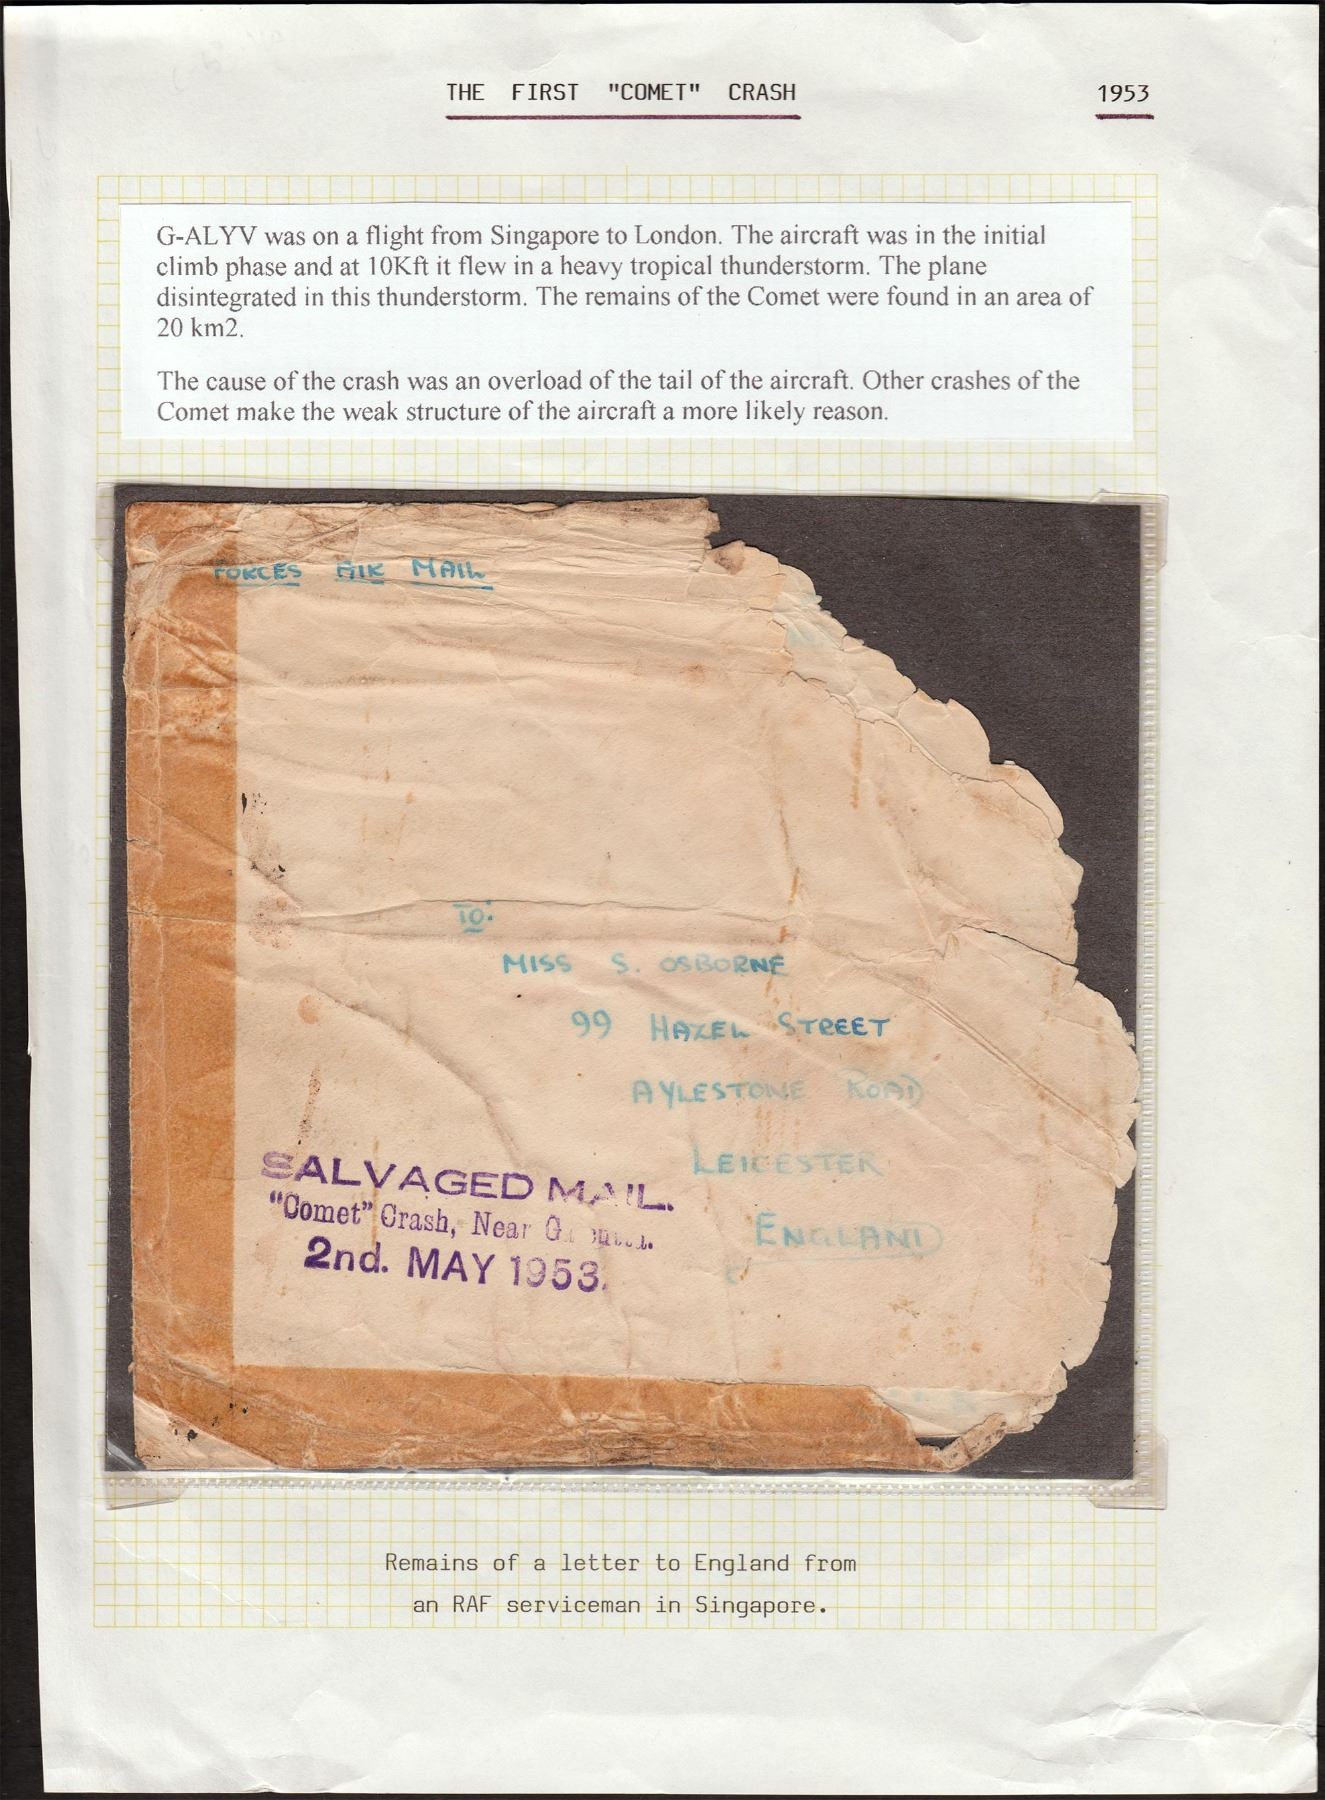 THE FIRST "COMET" CRASH 1953
G-ALYV was on a flight from Singapore to London. The aircraft was in the initial
climb phase and at 10Kft it flew in a heavy tropical thunderstorm. The plane
disintegrated in this thunderstorm. The remains of the Comet were found in an area of
20 km2.
The cause of the crash was an overload of the tail of the aircraft. Other crashes of the
Comet make the weak structure of the aircraft a more likely reason.
FORCES AIR MAIL
TO:
MISS S. OSBORNE
99 HAZEL STREET
AYLESTONE ROAD
LEICESTER
ENGLAND
SALVAGED MAIL.
"Comet" Crash, Near
2nd. MAY 1953.
Remains of a letter to England from
an RAF serviceman in Singapore.